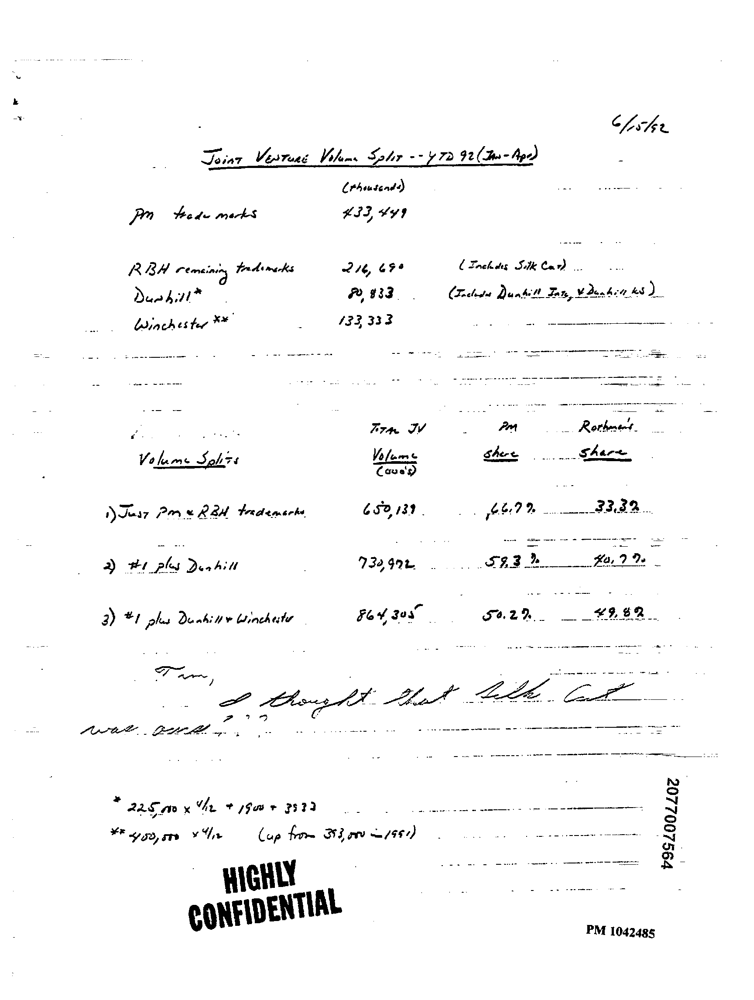 6/15/92
Joint Venture Volume Split -- YTD 92 (Jan-Apr)
(thousands)
PM trade marks 433,449
RBH remaining trademarks 216,690 (Includes Silk Cut)
Dunhill* 80,833 (Includes Dunhill Int'l & Dunhill KS)
Winchester ** 133,333
Total JV PM Rothman's
Volume Splits Volume share share
(000's)
1) Just PM & RBH trademarks 650,139 66.7% 33.3%
2) #1 plus Dunhill 730,972 59.3% 40.7%
3) #1 plus Dunhill + Winchester 864,305 50.2% 49.8%
Tim,
I thought that Silk Cut
was ours???
* 225,000 x 4/12 + 1900 + 3933
** 400,000 x 4/12 (up from 393,000 in 1991)
HIGHLY
CONFIDENTIAL
2077007564
PM 1042485